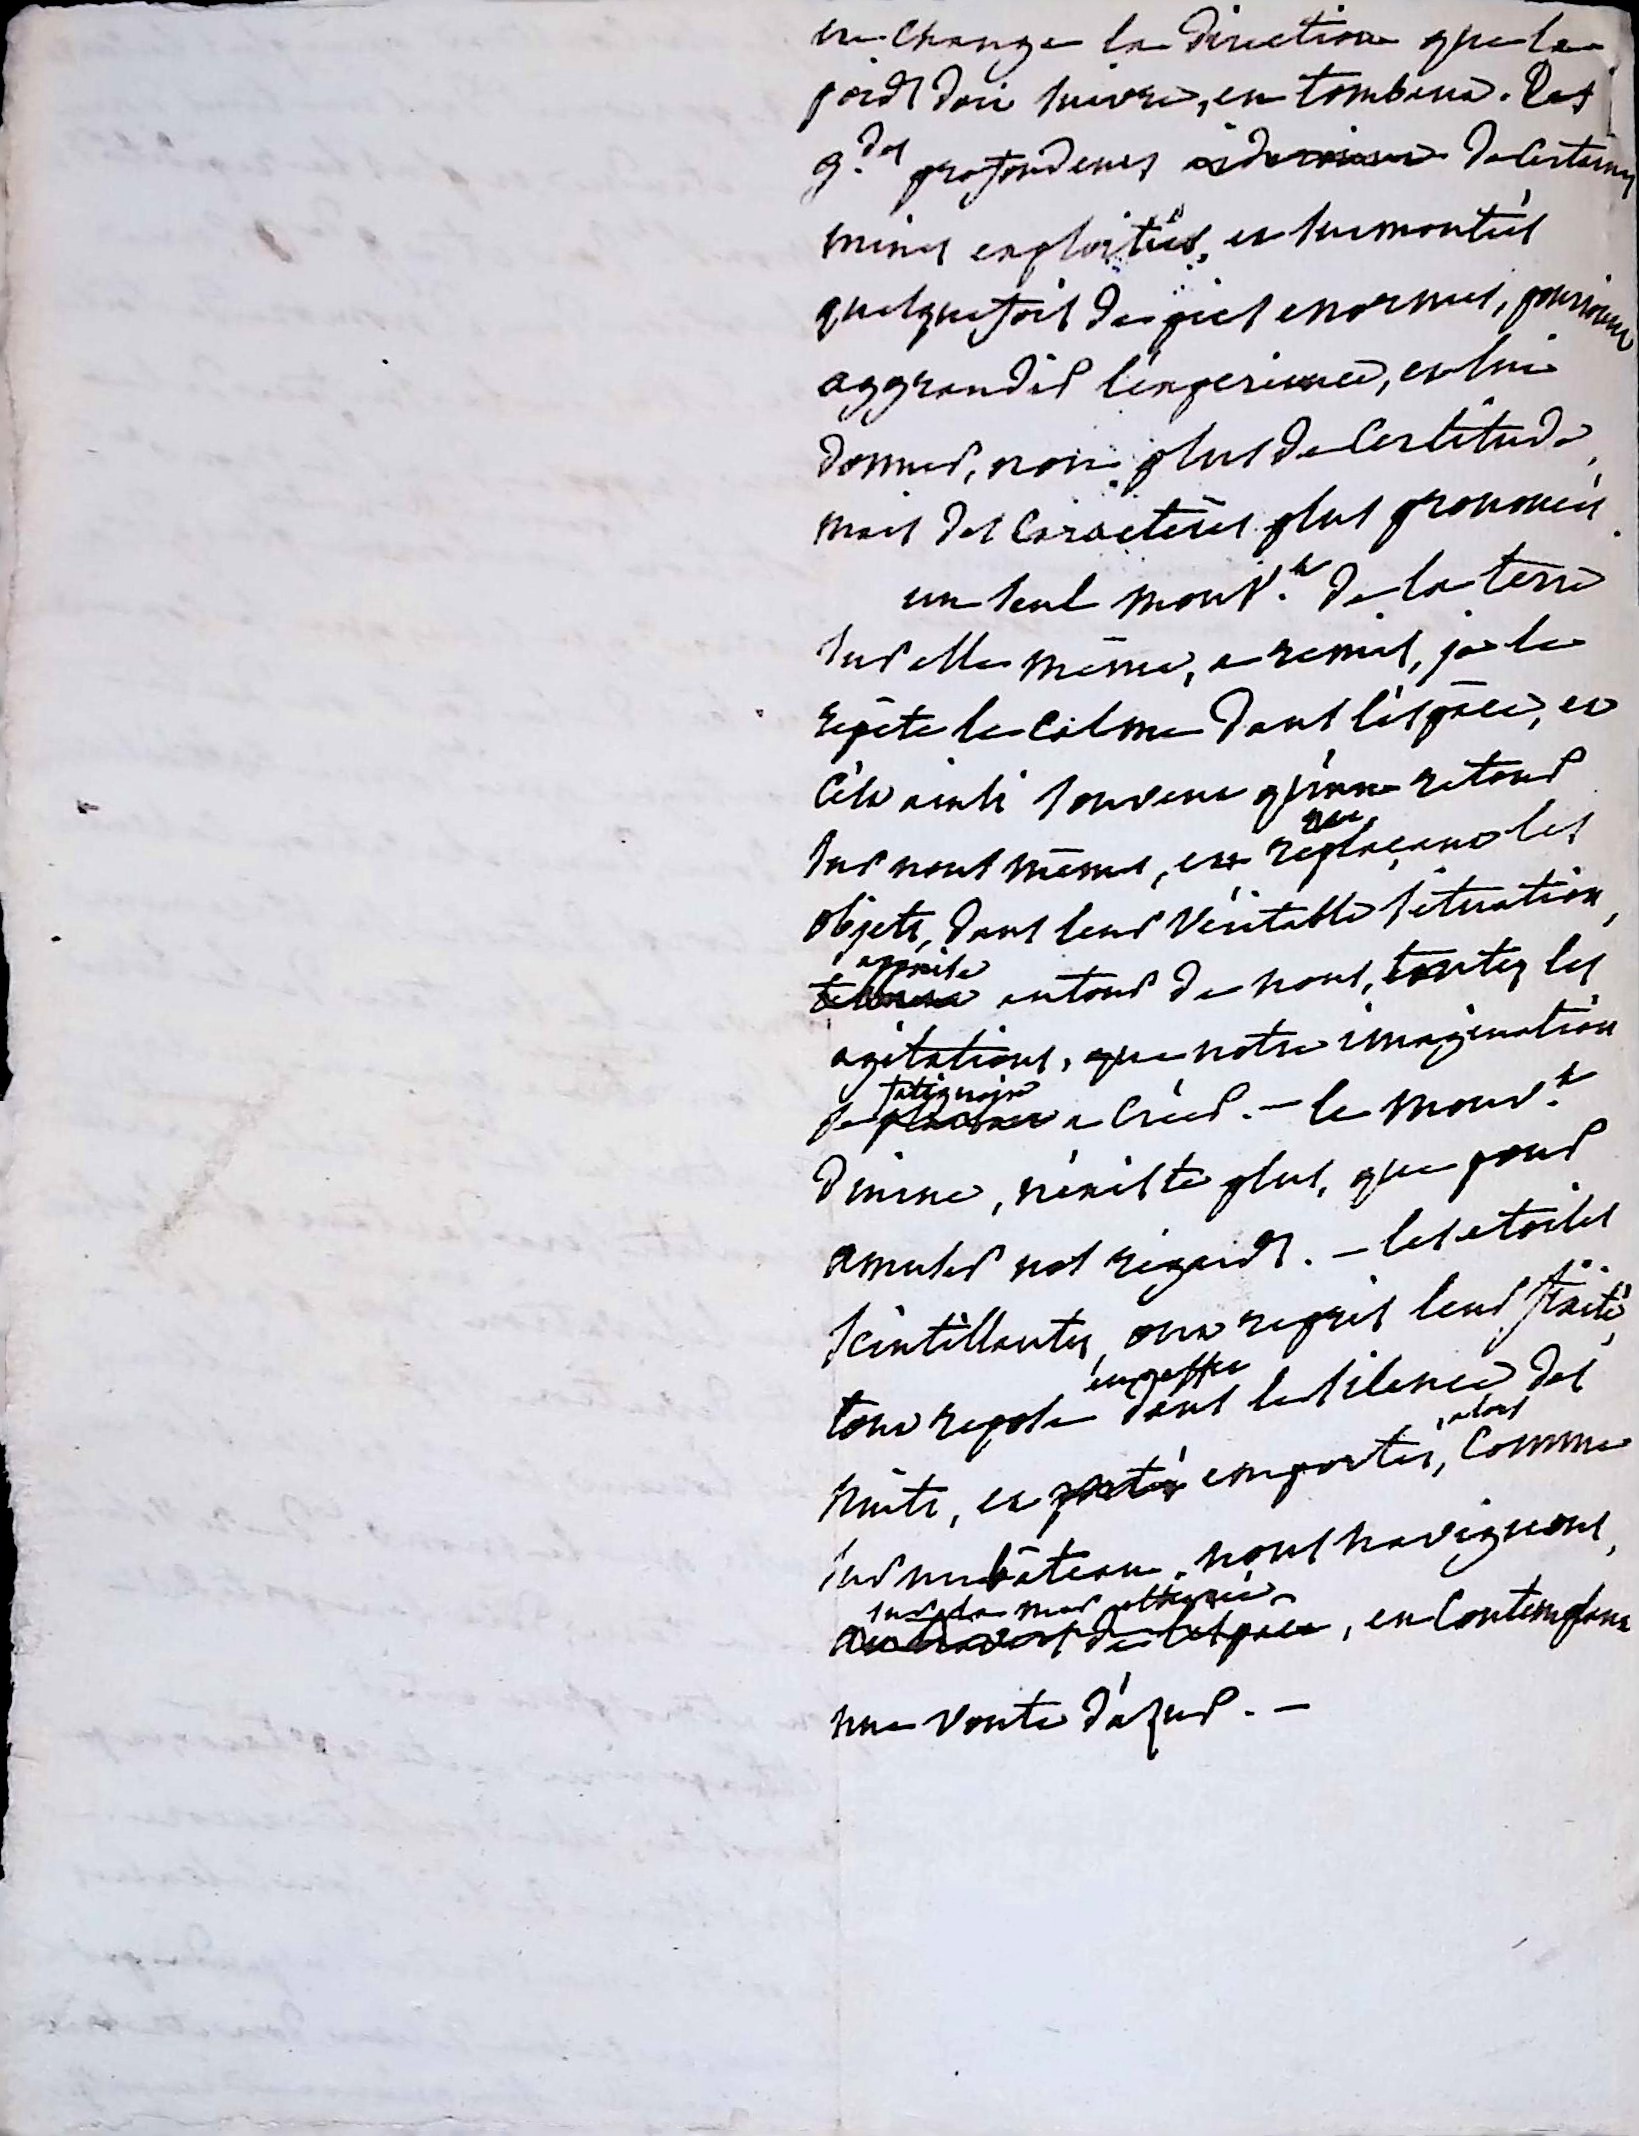 en change la direction que le
poids doit suivre, en tombant. Les
g.des profondeurs de certaines
mines exploitées, et surmontées
quelquefois de pics enormes, pourroient
aggrandir l'experience, et lui
donner, non plus de certitude,
mais des caractères plus prononcés.
un seul mouv.t de la terre
sur elle même, a remis, je le
repète le calme dans l'éspace, et
c'est ainsi souvent qu'un retour
sur nous mêmes, en replaçant les
objets, dans leur véritable situation,
appaise
autour de nous, toutes les
agitations, que notre imagination
se fatiguoit
a créer. — le mouv.t
diurne, n'éxiste plus, que pour
amuser nos regards. — les etoiles
scintillantes, ont repris leur fixité,
en effet
tout repose dans le silence des
alors
nuits, et portés emportés, comme
sur un bâteau, nous naviguons,
sur la mer etherée
au travers de l'espace, en contemplant
une voute d'ázur. —